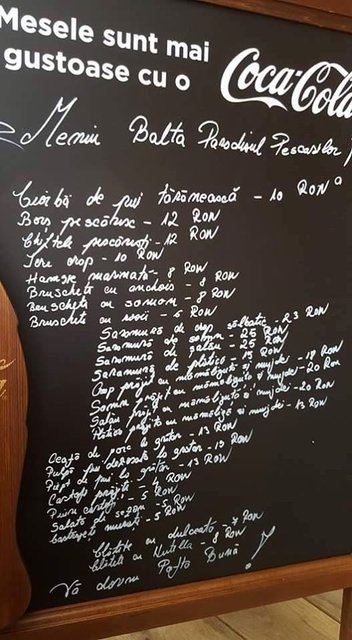 Mesele sunt mai
gustoase cu o
Coca-Cola
Meniu Balta Paradisul Pescarilor
Ciorbă de pui țărănească - 10 RON
Borș pescăresc - 12 RON
Chiftele pescărești - 12 RON
Icre crap - 10 RON
Hamsie marinată - 8 RON
Bruschete cu anchois - 8 RON
Bruschete cu somon - 8 RON
Bruschete cu - 6 RON
Saramură de crap sălbatic - 23 RON
Saramură de somn - 25 RON
Saramură de șalău - 25 RON
Saramură de plătică - 15 RON
Crap prăjit cu mămăliguță și mujdei - 18 RON
Somn prăjit cu mămăliguță și mujdei - 20 RON
Șalău prăjit cu mămăliguță și mujdei - 20 RON
Plătică prăjită cu mămăligă și mujdei - 13 RON
Ceafă de porc la grătar - 13 RON
Pulpă pui dezosată la grătar - 13 RON
Piept de pui la grătar - 13 RON
Cartofi prăjiți - 4 RON
Piure cartofi - 5 RON
Salată de sezon - 5 RON
Castraveți murați - 5 RON
Clătite cu dulceață - 7 RON
Clătite cu Nutella - 8 RON
Vă dorim Poftă Bună!